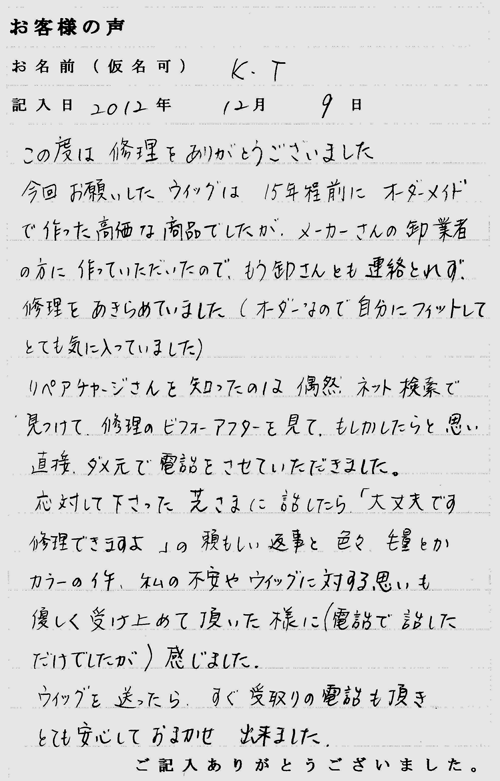 お客様の声
お名前（仮名可） K.T
記入日 2012年 12月 9日
この度は 修理を ありがとうございました
今回 お願いした ウィッグは 15年程前に オーダーメイド
で作った高価な商品でしたが、メーカーさんの卸業者
の方に 作っていただいたので、もう卸さんとも 連絡とれず、
修理を あきらめていました（オーダーなので自分にフィットして
とても気に入っていました）
リペアチャージさんを 知ったのは 偶然 ネット検索で
見つけて、修理の ビフォーアフターを見て、もしかしたらと思い
直接、ダメ元で電話をさせていただきました。
応対して下さった さまに 話したら、「大丈夫です
修理できますよ 」の 頼もしい 返事と 色々 毛量とか
カラーの件、私の不安や ウィッグに対する思いも
優しく 受け止めて 頂いた 様に（電話で 話した
だけでしたが）感じました。
ウィッグを 送ったら、すぐ 受取りの電話も頂き
とても安心して おまかせ 出来ました。
ご記入ありがとうございました。